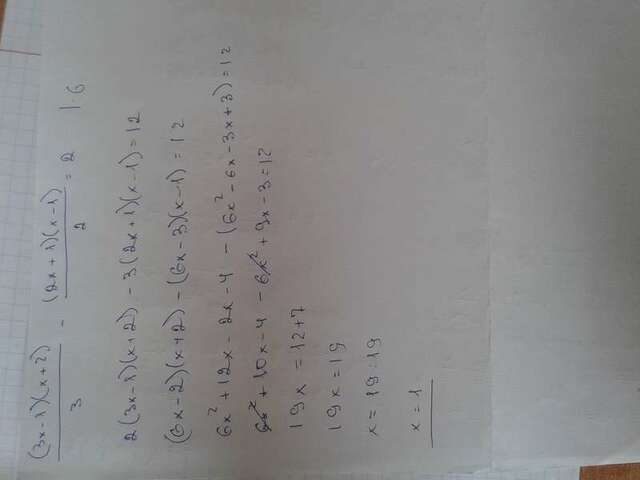 (3x-1)(x+2)/3 - (2x+1)(x-1)/2 = 2 |·6
2(3x-1)(x+2) - 3(2x+1)(x-1)=12
(6x-2)(x+2) - (6x-3)(x-1)=12
6x²+12x-2x-4 - (6x²-6x-3x+3)=12
6x²+10x-4 - 6x²+9x-3=12
19x = 12+7
19x=19
x=19:19
x=1